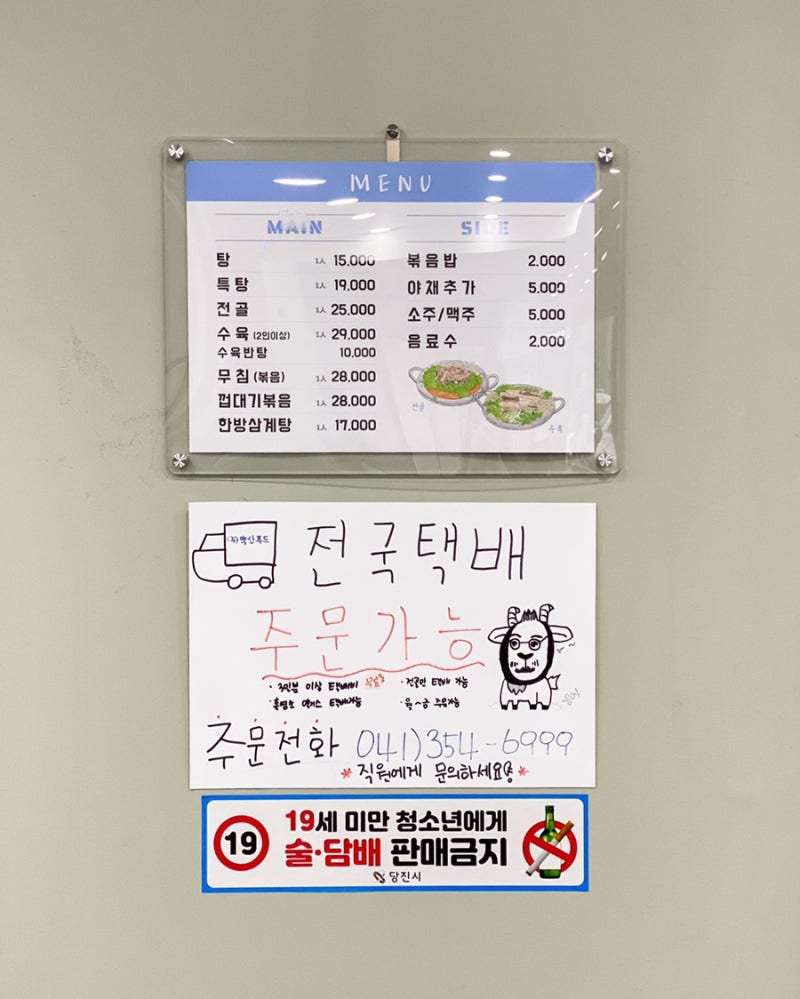 MENU
MAIN
탕 1人 15.000
특탕 1人 19.000
전골 1人 25.000
수육 (2인이상) 1人 29.000
수육반탕 10.000
무침 (볶음) 1人 28.000
껍대기볶음 1人 28.000
한방삼계탕 1人 17.000
SIDE
볶음밥 2.000
야채추가 5.000
소주/맥주 5.000
음료수 2.000
전골
수육
전국택배
주문가능
· 3인분 이상 택배비 무료
· 전골만 택배 가능
· 흑염소 택배가능
· 월~금 주문가능
음메
주문전화 041)354-6999
* 직원에게 문의하세요 *
19
19세 미만 청소년에게
술·담배 판매금지
당진시